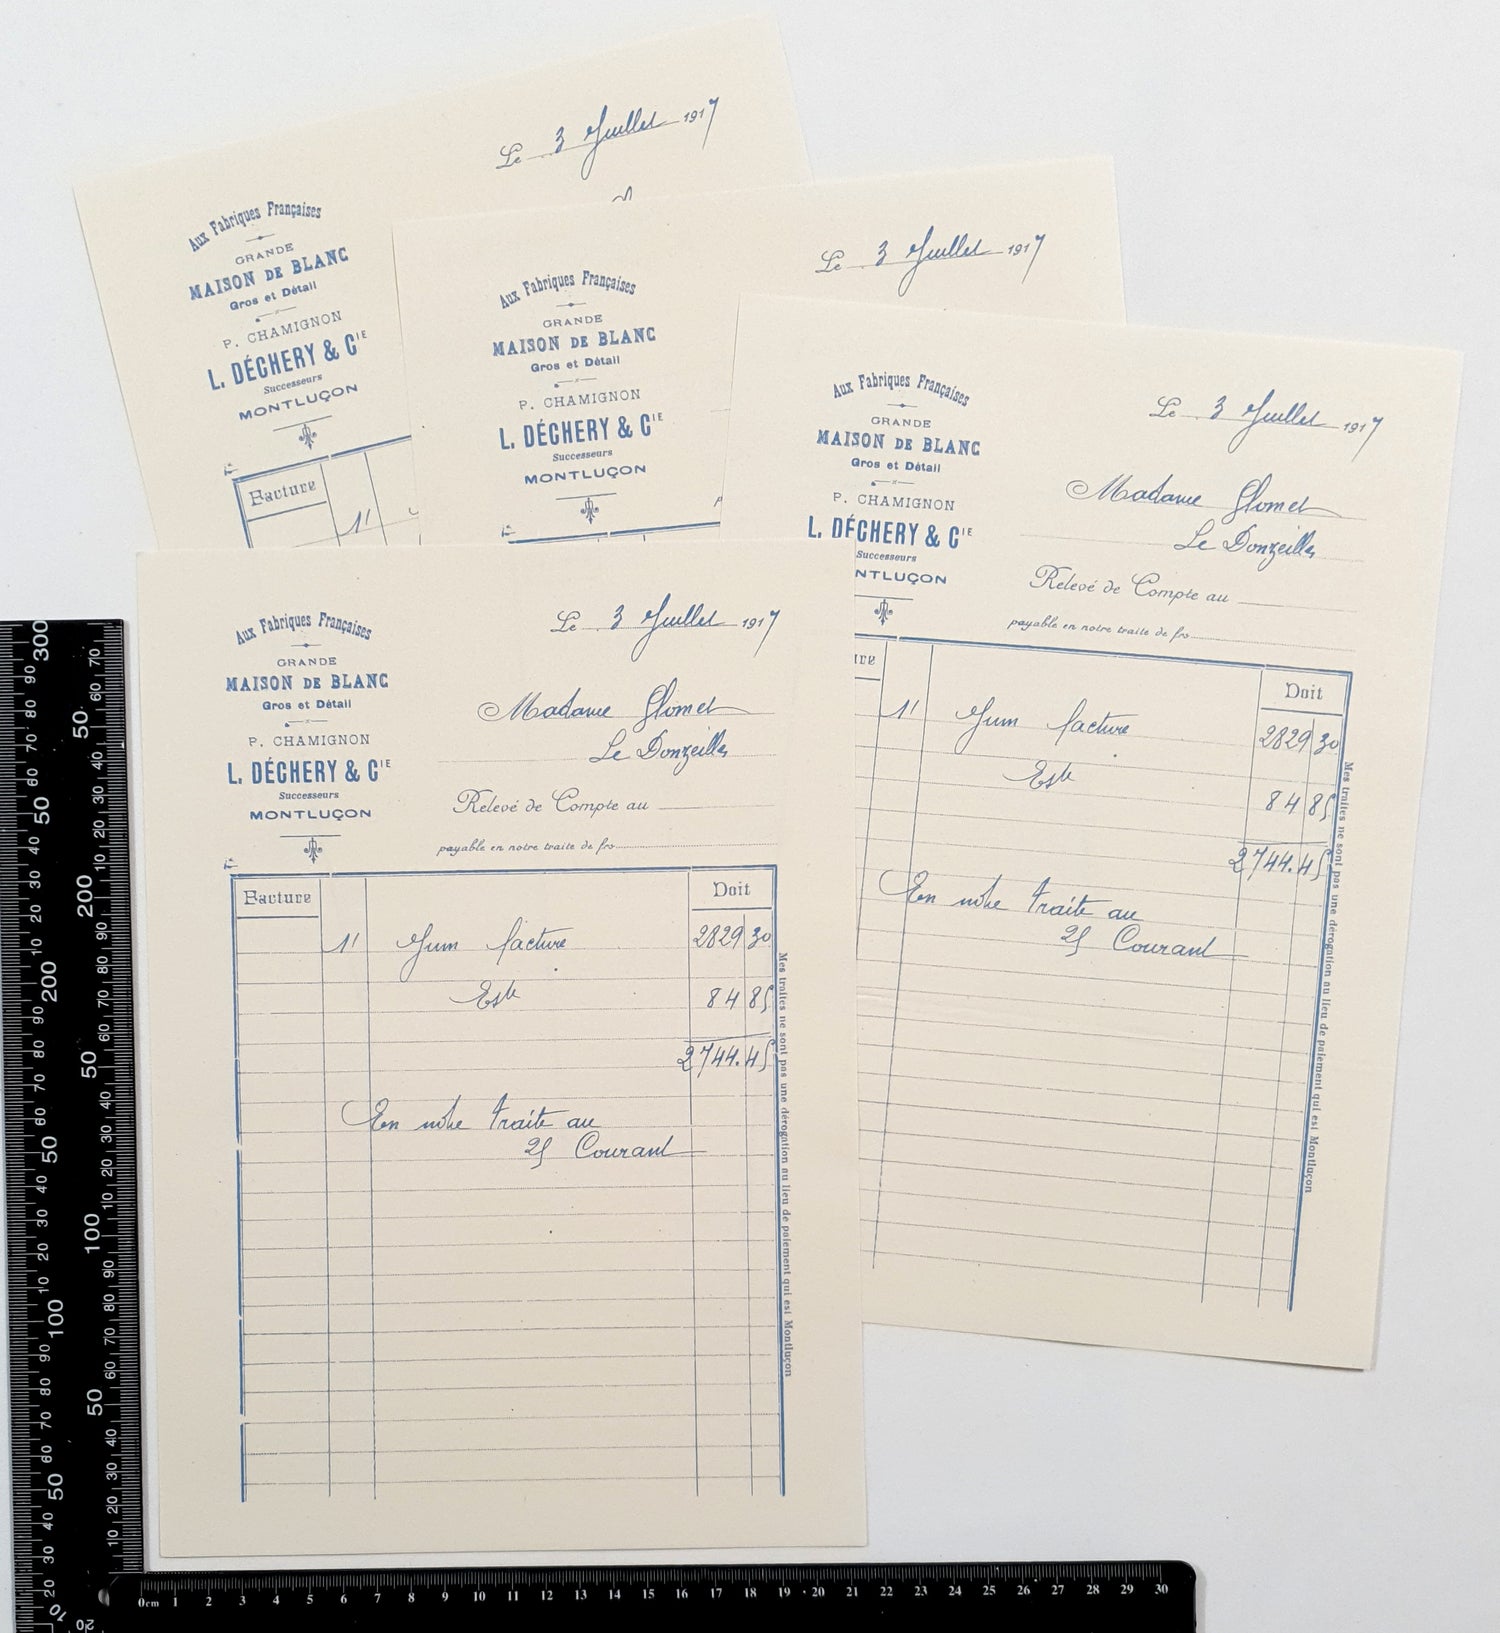 Le 3 Juillet 1917
Aux Fabriques Françaises
GRANDE
MAISON DE BLANC
Gros et Détail
P. CHAMIGNON
L. DÉCHERY & CIE
Successeurs
MONTLUÇON
Facture
1'
Le 3 Juillet 1917
Aux Fabriques Françaises
GRANDE
MAISON DE BLANC
Gros et Détail
P. CHAMIGNON
L. DÉCHERY & CIE
Successeurs
MONTLUÇON
Le 3 Juillet 1917
Aux Fabriques Françaises
GRANDE
MAISON DE BLANC
Gros et Détail
P. CHAMIGNON
L. DÉCHERY & CIE
Successeurs
NTLUÇON
Madame Glomet
Le Donzeille
Relevé de Compte au
payable en notre traite de frs
ure
Doit
1' facture 2829 30
Esk 84 85
2744.45
En notre traite au
25 Courant
Mes traites ne sont pas une dérogation au lieu de paiement qui est Montluçon
Le 3 Juillet 1917
Aux Fabriques Françaises
GRANDE
MAISON DE BLANC
Gros et Détail
P. CHAMIGNON
L. DÉCHERY & CIE
Successeurs
MONTLUÇON
Madame Glomet
Le Donzeille
Relevé de Compte au
payable en notre traite de frs
Facture Doit
1' facture 2829 30
84 85
2744.45
En notre traite au
25 Courant
Mes traites ne sont pas une dérogation au lieu de paiement qui est Montluçon
300 90 80 70 60 50 40 30 20 10 200 90 80 70 60 50 40 30 20 10 100 90 80 70 60 50 40 30 20 10
70 60 50 40 30 20 10 200 90 80 70 60 50 40 30 20 10 100 90 80 70 60 50 40 30 20 10
0cm 1 2 3 4 5 6 7 8 9 10 11 12 13 14 15 16 17 18 19 20 21 22 23 24 25 26 27 28 29 30